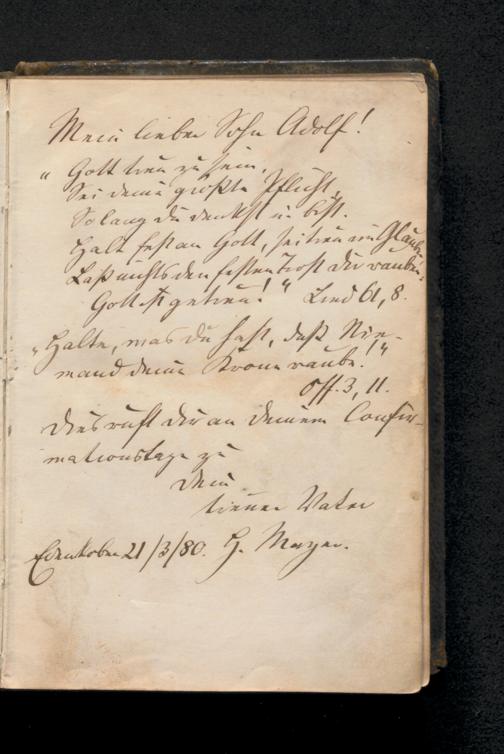 Mein lieber Sohn Adolf!
„Gott treu zu sein,
Sei deine größte Pflicht,
So lang du denkst u. bist.
Halt fest an Gott, sei treu im Glauben,
Laß nichts den festen Trost dir rauben:
Gott ist getreu!" Lied 61, 8.
„Halte, was du hast, daß Nie-
mand deine Krone raube!"
Off. 3, 11.
Dies ruft dir an deinem Confir-
mationstage zu
Dein
treuer Vater
Edenkoben 21/3/80. H. Mayer.